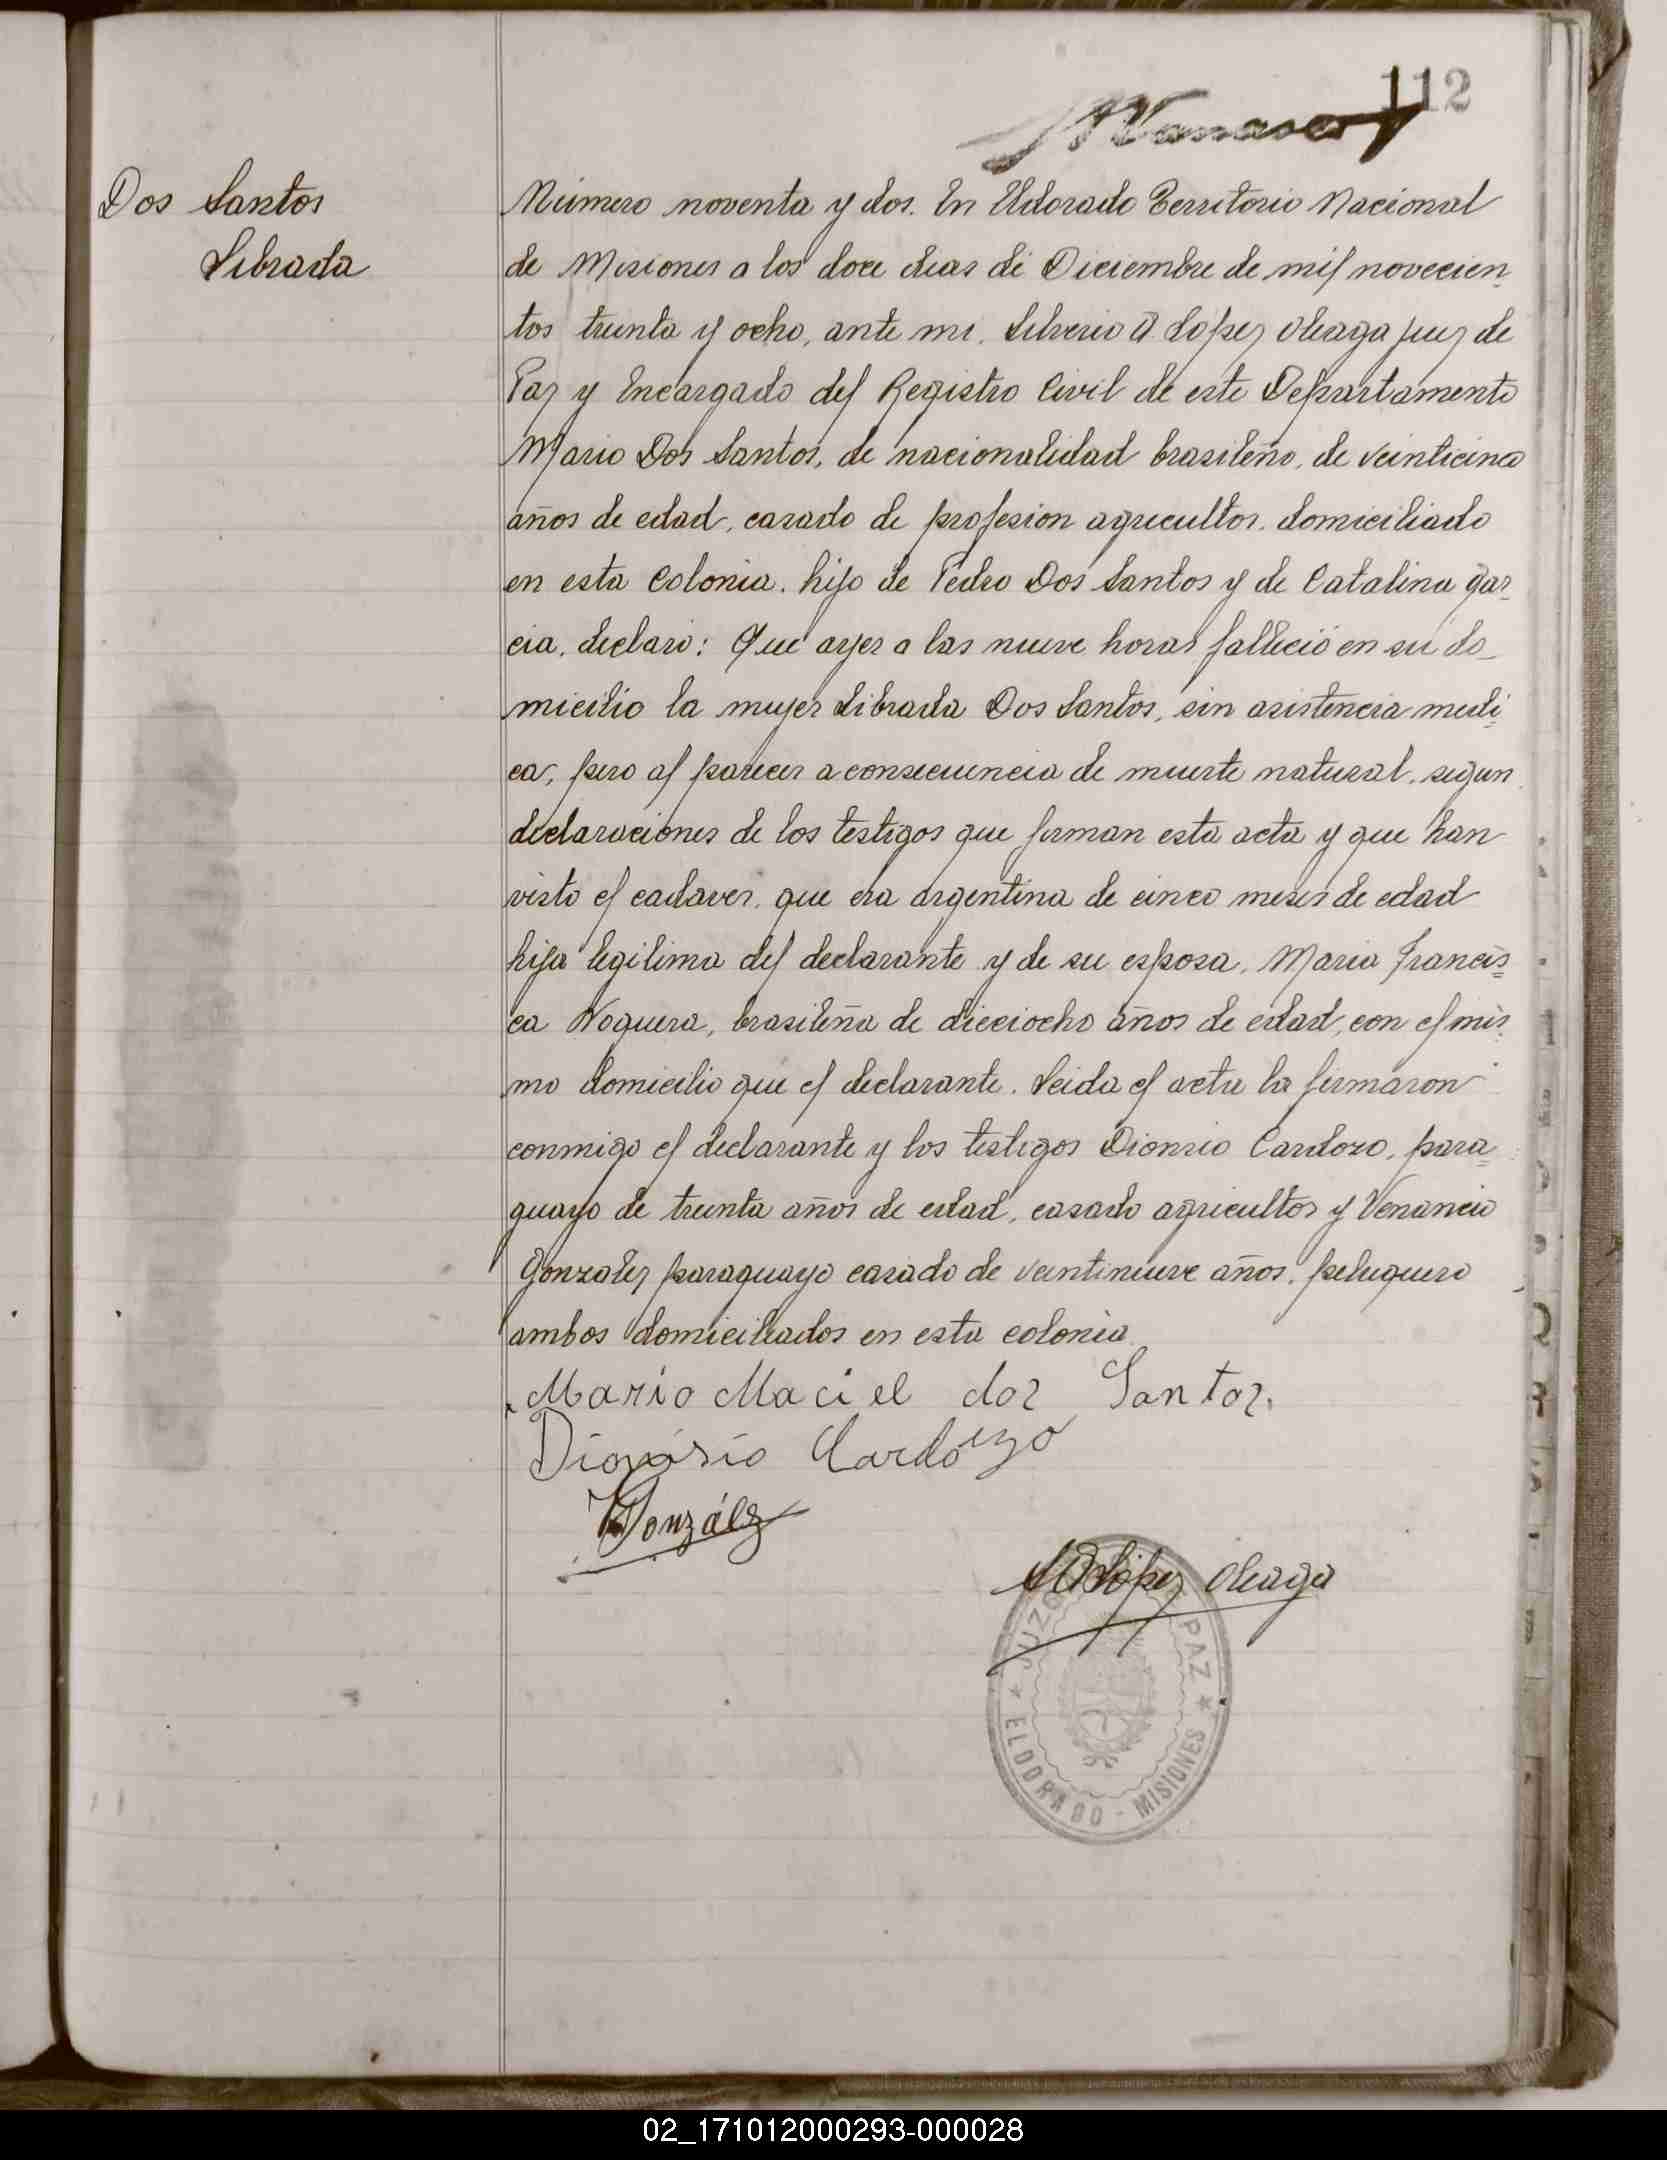 112
Dos Santos
Librada
Número noventa y dos. En Eldorado Territorio Nacional
de Misiones a los doce dias de Diciembre de mil novecien
tos treinta y ocho, ante mi, Silverio A. Lopez Oleaga juez de
Paz y Encargado del Registro Civil de este Departamento
Mario Dos Santos, de nacionalidad brasileño, de veinticinco
años de edad, casado de profesion agricultor, domiciliado
en esta Colonia, hijo de Pedro Dos Santos y de Catalina Gar
cia, declaró: Que ayer a las nueve horas falleció en su do_
micilio la mujer Librada Dos Santos, sin asistencia medi
ca, pero al parecer a consecuencia de muerte natural, segun
declaraciones de los testigos que firman esta acta y que han
visto el cadaver, que era argentina de cinco meses de edad
hija legitima del declarante y de su esposa, Maria Francis=
ca Noguera, brasileña de dieciocho años de edad, con el mis
mo domicilio que el declarante. Leida el acta la firmaron
conmigo el declarante y los testigos Dionisio Cardozo, para=
guayo de treinta años de edad, casado agricultor y Venancio
Gonzalez paraguayo casado de veintinueve años, peluquero
ambos domiciliados en esta colonia
Mario Maciel dos Santos.
Dionisio Cardozo
González
Lopez Oleaga
JUZGADO PAZ
ELDORADO - MISIONES
02_171012000293-000028